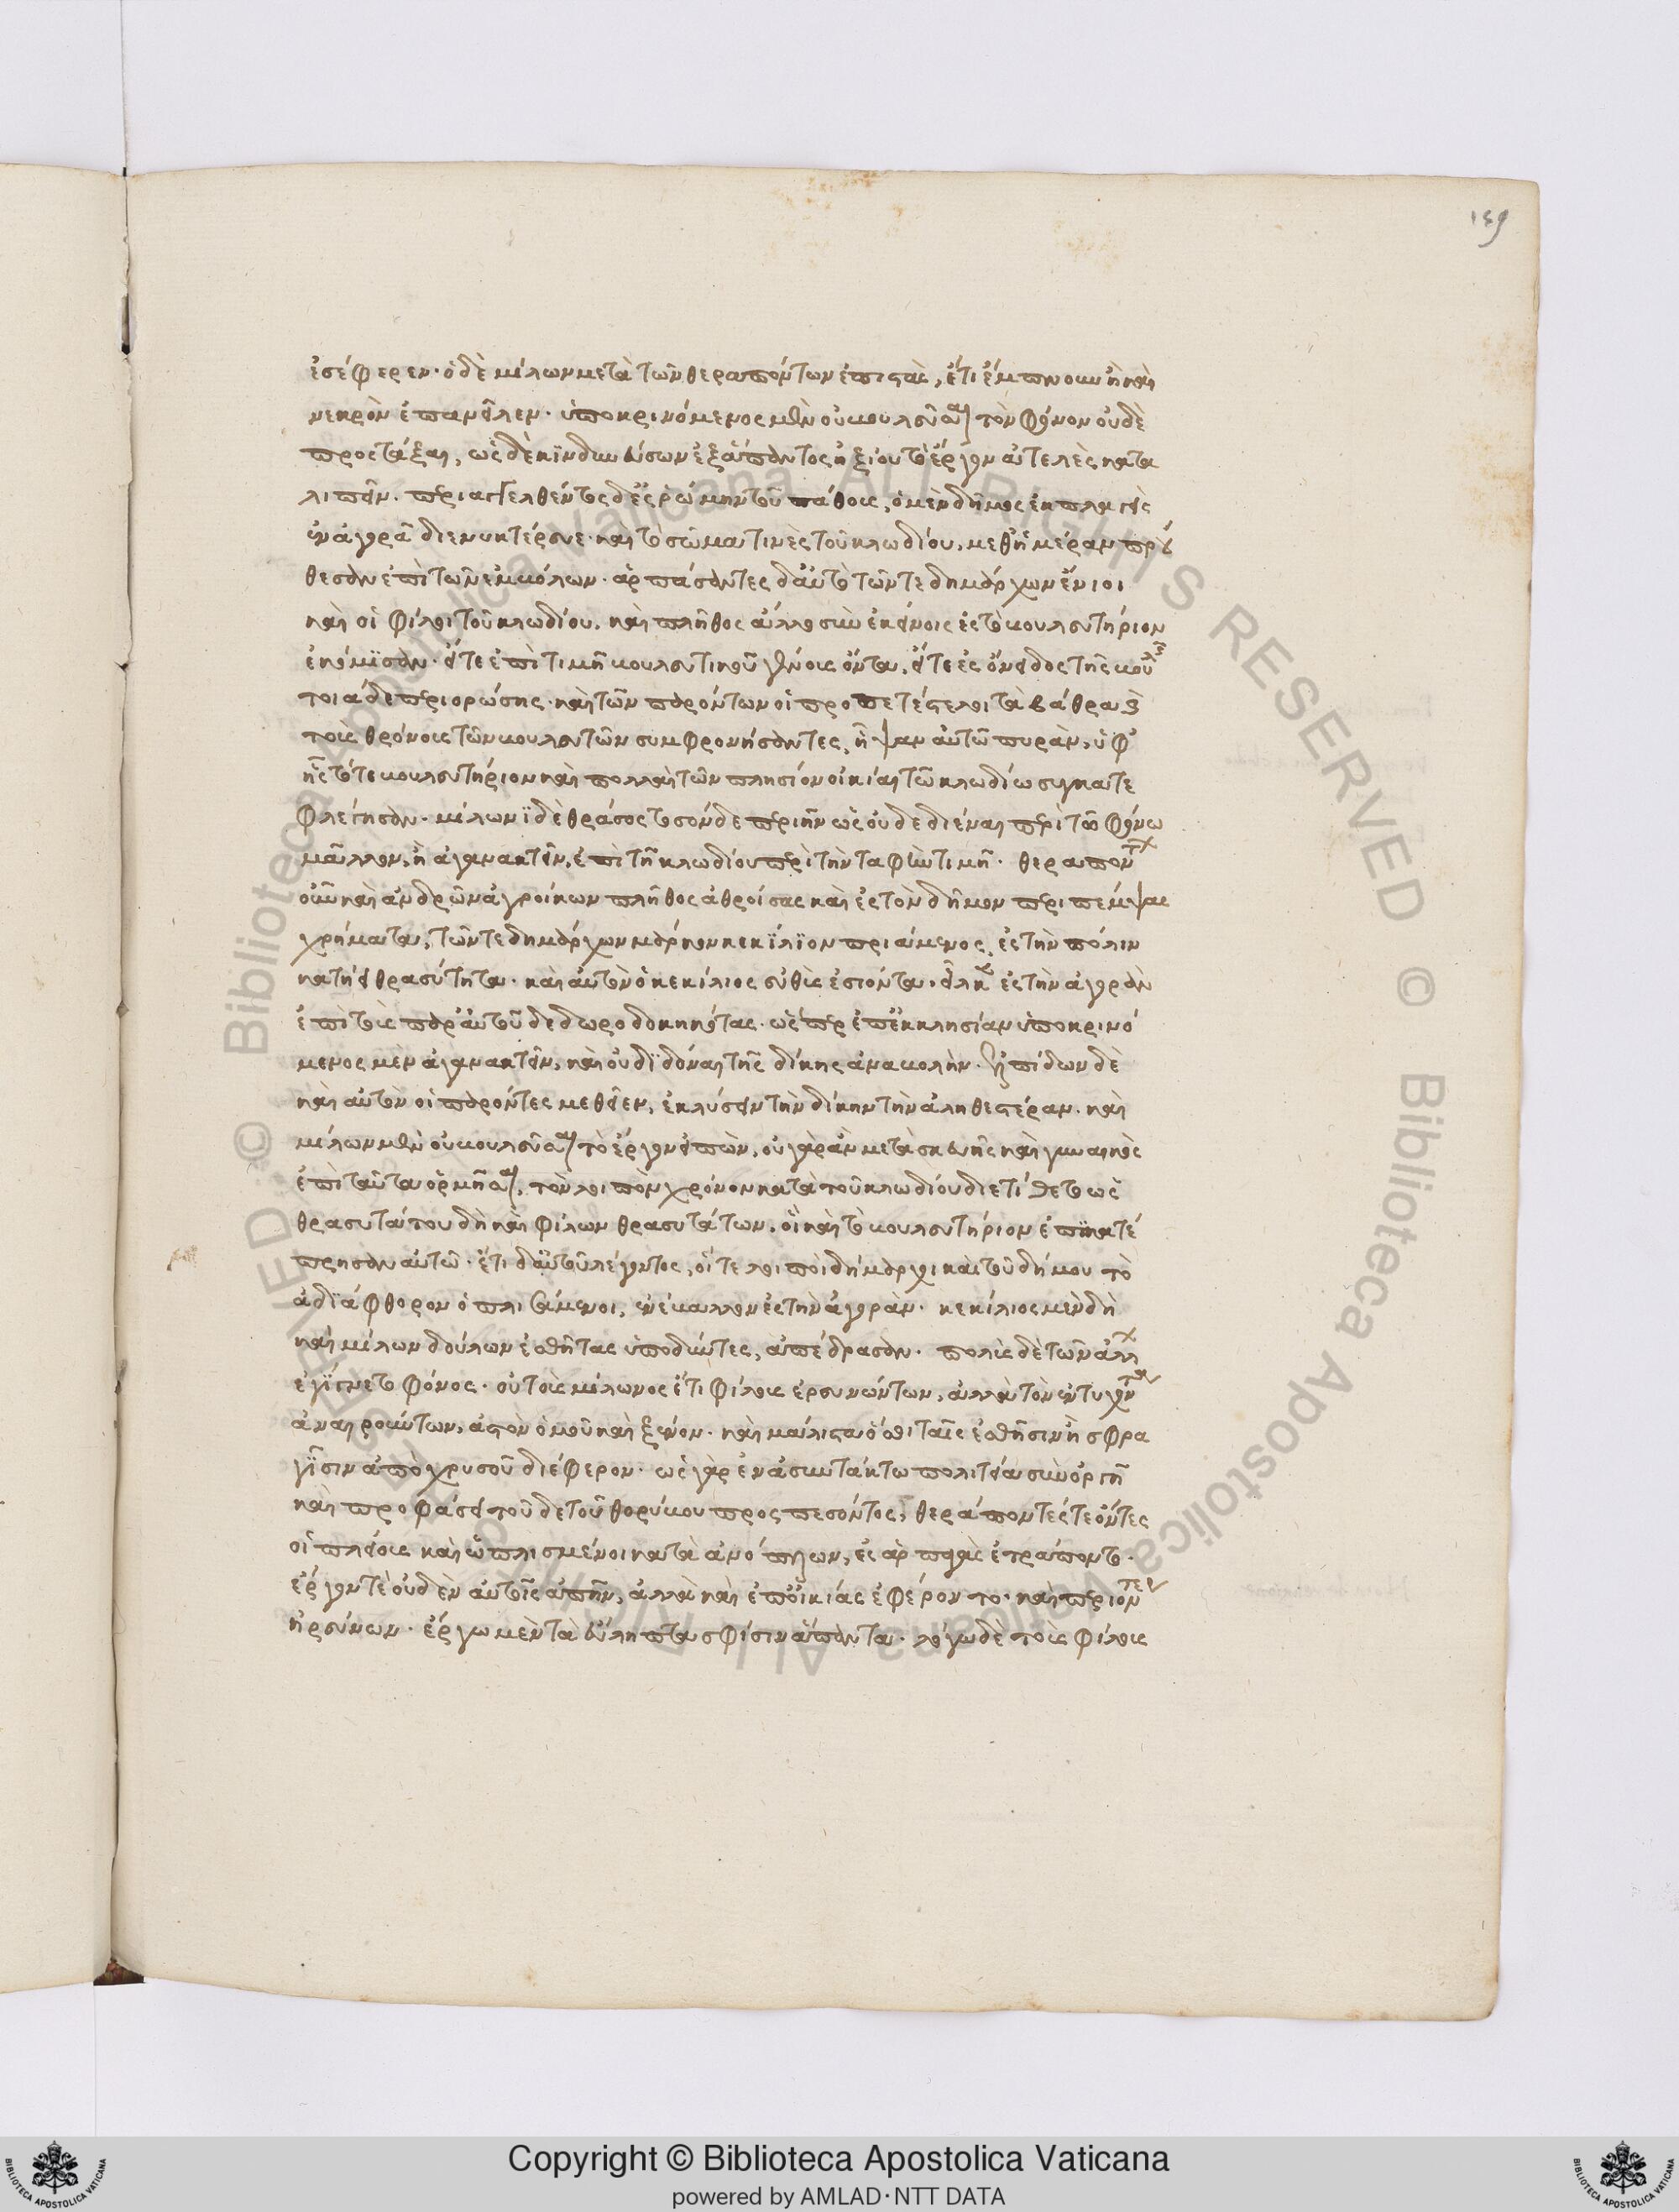 ἐσέφερεν· ὁ δὲ μίλων μετὰ τῶν θεραπόντων ἐπιστὰς, ἔτι ἔμπνουν ἢ καὶ
νεκρὸν ἐπανεῖλεν· ὑποκρινόμενος μὲν οὐ βουλεῦσαι τὸν φόνον οὐδὲ
προστάξαι, ὡς δὲ κϊνδυνεύσων ἐξἅπαντος ἠξίου τὸ ἔργον ἀτελὲς κατα
λιπεῖν. περιαγγελθέντος δ' ἐς ῥώμην τοῦ πάθους, ὁ μὲν δῆμος ἐκπλαγεὶς
ἐν ἀγορᾶ διενυκτέρευε· καὶ τὸ σῶμα τινὲς τοῦ κλωδίου, μεθ' ἡμέραν πρού
θεσαν ἐπὶ τῶν ἐμβόλων· ἁρπάσαντες δ' αὐτὸ τῶν τε δημάρχων ἔνιοι
καὶ οἱ φίλοι τοῦ κλωδίου, καὶ πλῆθος ἄλλο σὺν ἐκείνοις ἐς τὸ βουλευτήριον
ἐκόμϊσαν· εἴτε ἐπὶ τιμῆ βουλευτικοῦ γένους ὄντα, εἴτε ἐς ὄνειδος τῆς βουλῆς
τοιάδε περιορώσης. καὶ τῶν παρόντων οἱ προπετέστεροι τὰ βάθρα καὶ
τοὺς θρόνους τῶν βουλευτῶν συμφρονήσαντες, ἧψαν αὐτῶ πυρὰν, ὑφ'
ἧς τό τε βουλευτήριον καὶ πολλαὶ τῶν πλησίον οἰκίαι τῶ κλωδίω συγκατε
φλέγησαν. μίλωνϊ δὲ θράσος τοσόνδε περιῆν ὡς οὐ δεδιέναι περὶ τῶ φόνω
μᾶλλον, ἢ ἀγανακτεῖν, ἐπὶ τῆ κλωδίου περὶ τὴν ταφὴν τιμῆ. θεραπόντων
οὖν καὶ ἀνδρῶν ἀγροίκων πλῆθος ἀθροίσας καὶ ἐς τὸν δῆμον περιπέμψας
χρήματα, τῶν τε δημάρχων μάρκον κεκϊλϊον πριάμενος, ἐς τὴν πόλιν
κατήει θρασύτητα. καὶ αὐτὸν ὁ κεκίλιος εὐθὺς ἐσιόντα, εἷλκεν ἐς τὴν ἀγορὰν
ἐπὶ τοὺς παρ' αὐτοῦ δεδωροδοκηκότας. ὥσπερ ἐπ' ἐκκλησίαν ὑποκρινό
μενος μὲν ἀγανακτεῖν, καὶ οὐ δϊδόναι τῆς δίκης ἀναβολὴν. ἐλπίζων δὲ
καὶ αὐτὸν οἱ παρόντες μεθεῖεν, ἐκλύσειν τὴν δίκην τὴν ἀληθεστέραν. καὶ
μίλων μὲν οὐ βουλεῦσαι τὸ ἔργον εἰπὼν, οὐ γὰρ ἂν μετὰ σκευῆς καὶ γυναικὸς
ἐπὶ ταῦτα ὁρμῆσαι, τὸν λοιπὸν χρόνον κατὰ τοῦ κλωδίου διετίθετο ὡς
θρασυτάτου δὴ καὶ φίλων θρασυτάτων. οἳ καὶ τὸ βουλευτήριον ἐπικατέ
πρησαν αὐτῶ. ἔτι δ' αὐτοῦ λέγοντος, οἵ τε λοιποὶ δήμαρχοι καὶ τοῦ δήμου τὸ
ἀδϊάφθορον ὁπλισάμενοι, ἐνέβαλλον ἐς τὴν ἀγορὰν. κεκίλιος μὲν δὴ
καὶ μίλων δούλων ἐσθῆτας ὑποδύντες, ἀπέδρασαν. πολὺς δὲ τῶν ἄλλων
ἐγίγνετο φόνος. οὐ τοὺς μίλωνος ἔτι φίλους ἐρευνώντων, ἀλλὰ τὸν ἐντυχόντα
ἀναιρούντων, ἀστὸν ὁμοῦ καὶ ξένον. καὶ μάλιστα ὅσοι ταῖς ἐσθῆσιν ἢ σφρα
γῖσιν ἀπὸ χρυσοῦ διέφερον. ὡς γὰρ ἐν ἀσυντάκτω πολιτεία σὺν ὀργῆ
καὶ προφάσει τοῦδε τοῦ θορύβου προσπεσόντος, θεράποντές τε ὄντες
οἱ πλείους καὶ ὡπλισμένοι κατὰ ἀνόπλων, ἐς ἁρπαγὰς ἐτράποντο.
ἔργον τὲ οὐδὲν αὐτοῖς ἀπῆν, ἀλλὰ καὶ ἐπ' οἰκίας ἐφέροντο. καὶ περιϊόντες
ἠρεύνων. ἔργω μὲν τὰ εὔληπτα σφίσιν ἅπαντα. λόγω δὲ τοὺς φίλους
Copyright © Biblioteca Apostolica Vaticana
powered by AMLAD·NTT DATA